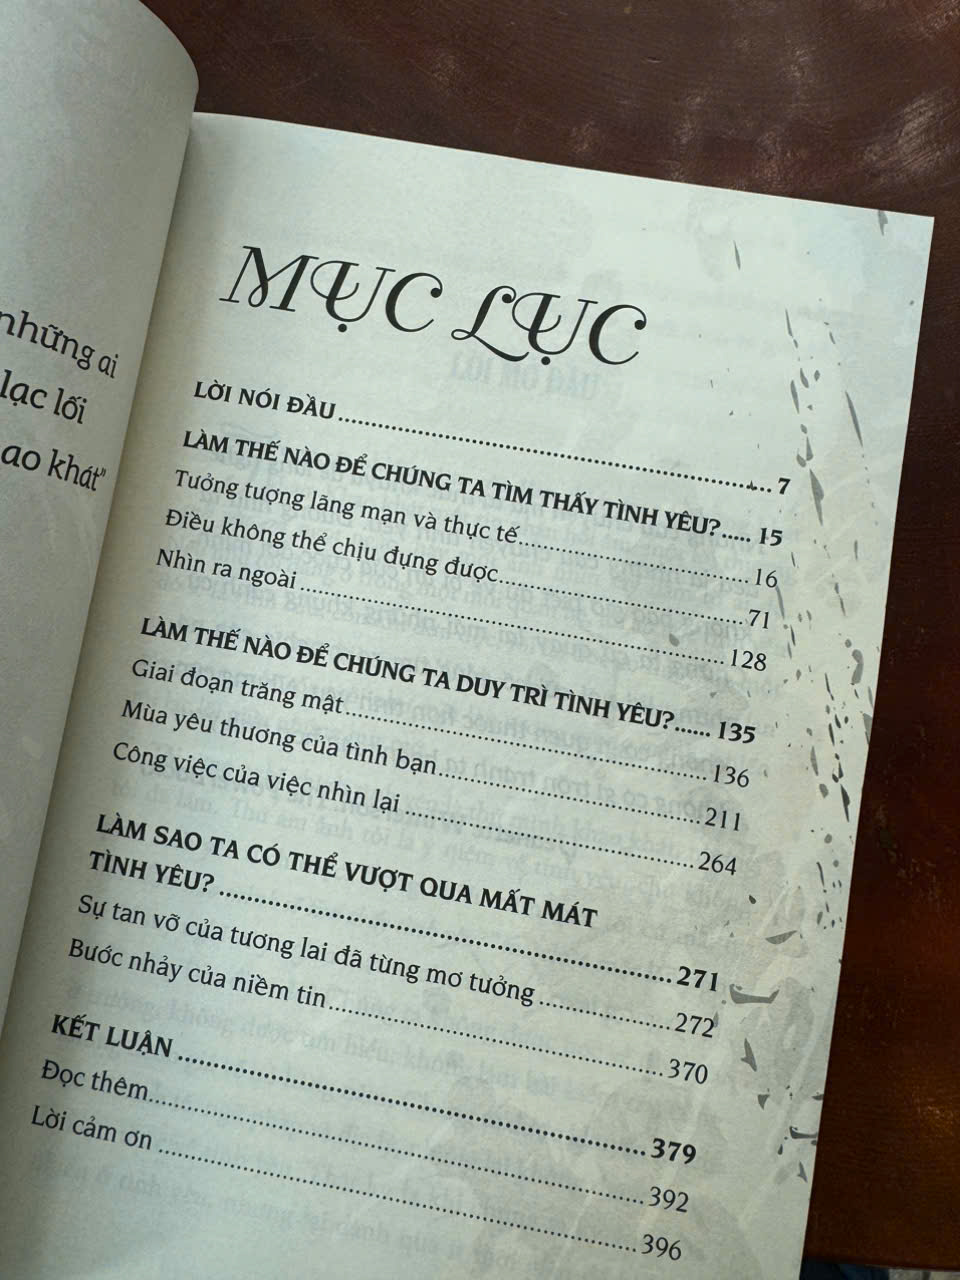 những ai
lạc lối
ao khát"
MỤC LỤC
LỜI NÓI ĐẦU 7
LÀM THẾ NÀO ĐỂ CHÚNG TA TÌM THẤY TÌNH YÊU? 15
Tưởng tượng lãng mạn và thực tế 16
Điều không thể chịu đựng được 71
Nhìn ra ngoài 128
LÀM THẾ NÀO ĐỂ CHÚNG TA DUY TRÌ TÌNH YÊU? 135
Giai đoạn trăng mật 136
Mùa yêu thương của tình bạn 211
Công việc của việc nhìn lại 264
LÀM SAO TA CÓ THỂ VƯỢT QUA MẤT MÁT
TÌNH YÊU? 271
Sự tan vỡ của tương lai đã từng mơ tưởng 272
Bước nhảy của niềm tin 370
KẾT LUẬN 379
Đọc thêm 392
Lời cảm ơn 396